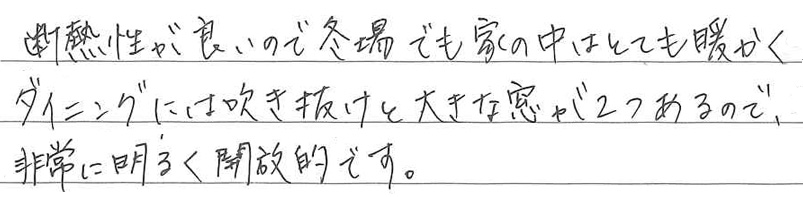 断熱性が良いので冬場でも家の中はとても暖かく
ダイニングには吹き抜けと大きな窓が2つあるので、
非常に明るく開放的です。